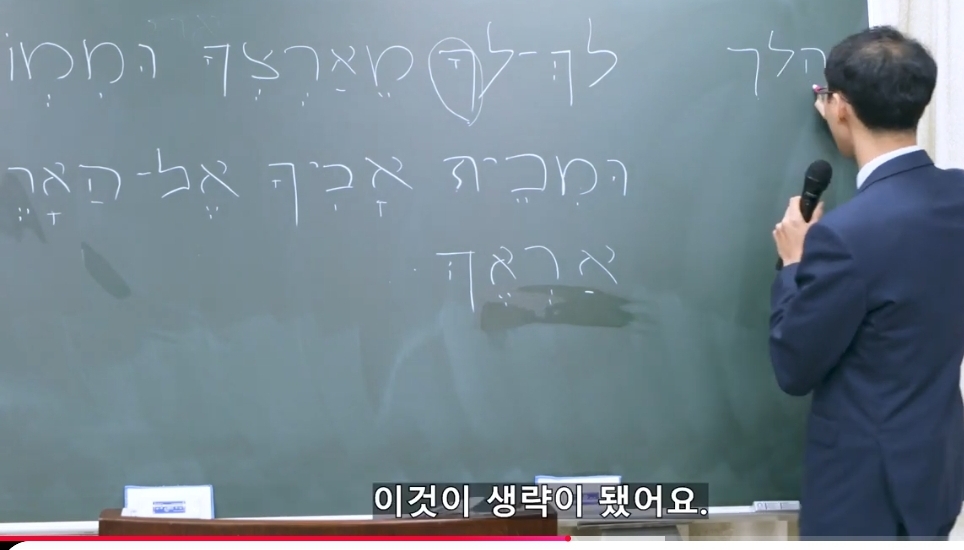 הלך לֶךְ-לְךָ מֵאַרְצְךָ וּמִמּוֹ
וּמִבֵּית אָבִיךָ אֶל-הָאָרֶ
אַרְאֶךָּ
이것이 생략이 됐어요.